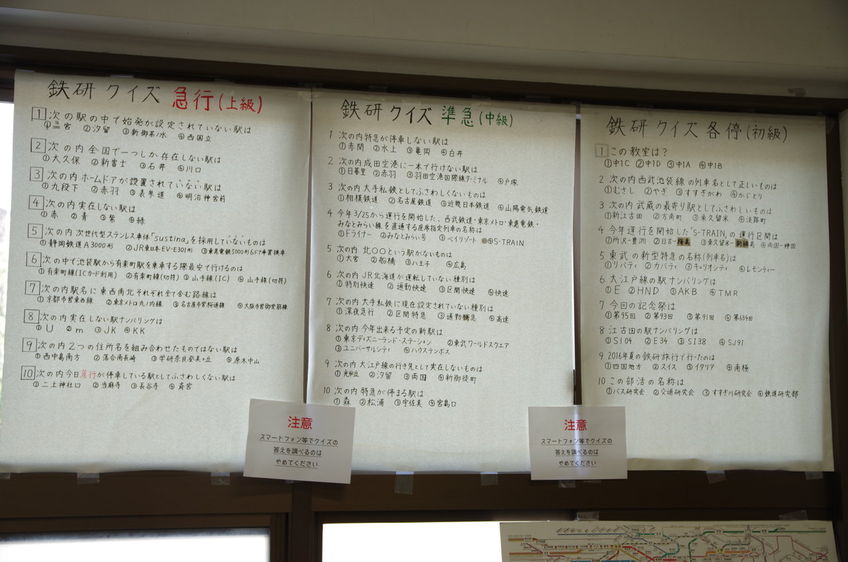 鉄研クイズ 急行(上級)
1 次の駅の中で始発が設定されていない駅は
①三宮 ②汐留 ③新御茶ノ水 ④西国立
2 次の内全国で一つしか存在しない駅は
①大久保 ②新富士 ③石井 ④川口
3 次の内ホームドアが設置されていない駅は
①九段下 ②赤羽 ③表参道 ④明治神宮前
4 次の内実在しない駅は
①赤 ②青 ③紫 ④緑
5 次の内次世代型ステンレス車体「sustina」を採用していないものは
①静岡鉄道A3000形 ②JR東日本EV-E301形
6 次の中で池袋駅から有楽町駅を乗車する際最安で行けるのは
①有楽町線(ICカード利用) ②有楽町線(切符) ③山手線(IC) ④山手線(切符)
7 次の内駅名に東西南北それぞれ全て含む路線は
②東京メトロ丸ノ内線
8 次の内実在しない駅ナンバリングは
①U ②m ③JK ④KK
9 次の内2つの住所名を組み合わせたものではない駅は
①西中島南方 ②落合南長崎 ③学研奈良登美ヶ丘 ④原木中山
10 次の内今日急行が停車している駅としてふさわしくない駅は
①二上神社口 ②当麻寺 ③長谷寺
鉄研クイズ 準急(中級)
1 次の内特急が停車しない駅は
①赤間 ②水上 ③亀岡 ④白井
2 次の内成田空港に一本で行けない駅は
①日暮里 ②赤羽 ③羽田空港国際線ターミナル ④戸塚
3 次の内大手私鉄としてふさわしくないものは
①相模鉄道 ②名古屋鉄道 ③近畿日本鉄道 ④山陽電気鉄道
4 今年3/25から運行を開始した、西武鉄道・東京メトロ・東急電鉄・
みなとみらい線を直通する座席指定列車の名称は
①Fライナー ②みなとみらい号 ③ベイリゾート ④S-TRAIN
5 次の内北〇〇という駅がないものは
①大宮 ②船橋 ③八王子 ④広島
6 次の内JR北海道が運転していない種別は
①特別快速 ②通勤快速 ③区間快速 ④快速
7 次の内大手私鉄に現在設定されていない種別は
①深夜急行 ②区間特急 ③通勤準急 ④高速
8 次の内今年出来る予定の新駅は
①東京ディズニーランド・ステーション ②東武ワールドスクウェア
③ユニバーサルシティ ④ハウステンボス
9 次の内大江戸線の行き先として実在しないのは
①光が丘 ②汐留 ③両国 ④新御徒町
10 次の内特急が停まる駅は
①森 ②松浦 ③宇佐美 ④宮島口
鉄研クイズ 各停(初級)
1 この教室は?
①中1C ②中1D ③中1A ④中1B
2 次の内西武池袋線の列車名として正しいものは
①むさし ②やぎ ③すずがわ ④かぶとり
3 次の内武蔵の最寄り駅としてふさわしいものは
①新江古田 ②方南町 ③東久留米 ④淡路町
4 今年運行を開始した「S-TRAIN」の運行区間は
①所沢-豊洲
5 東武の新型特急の名称(列車名)は
①リバティ ②カバティ ③キャリオンティ ④レモンティー
6 大江戸線の駅ナンバリングは
①E ②HND ③AKB ④TMR
7 今回の記念祭は
①第95回 ②第93回 ③第91回 ④第634回
8 江古田の駅ナンバリングは
①SI04 ②E34 ③SI38 ④SJ91
9 2016年夏の鉄研旅行で行ったのは
①四国地方 ②スイス ③イタリア ④南極
10 この部活の名称は
①バス研究会 ②交通研究会 ③すずき川研究会 ④鉄道研究部
注意
スマートフォン等でクイズの
答えを調べるのは
やめてください
注意
スマートフォン等でクイズの
答えを調べるのは
やめてください